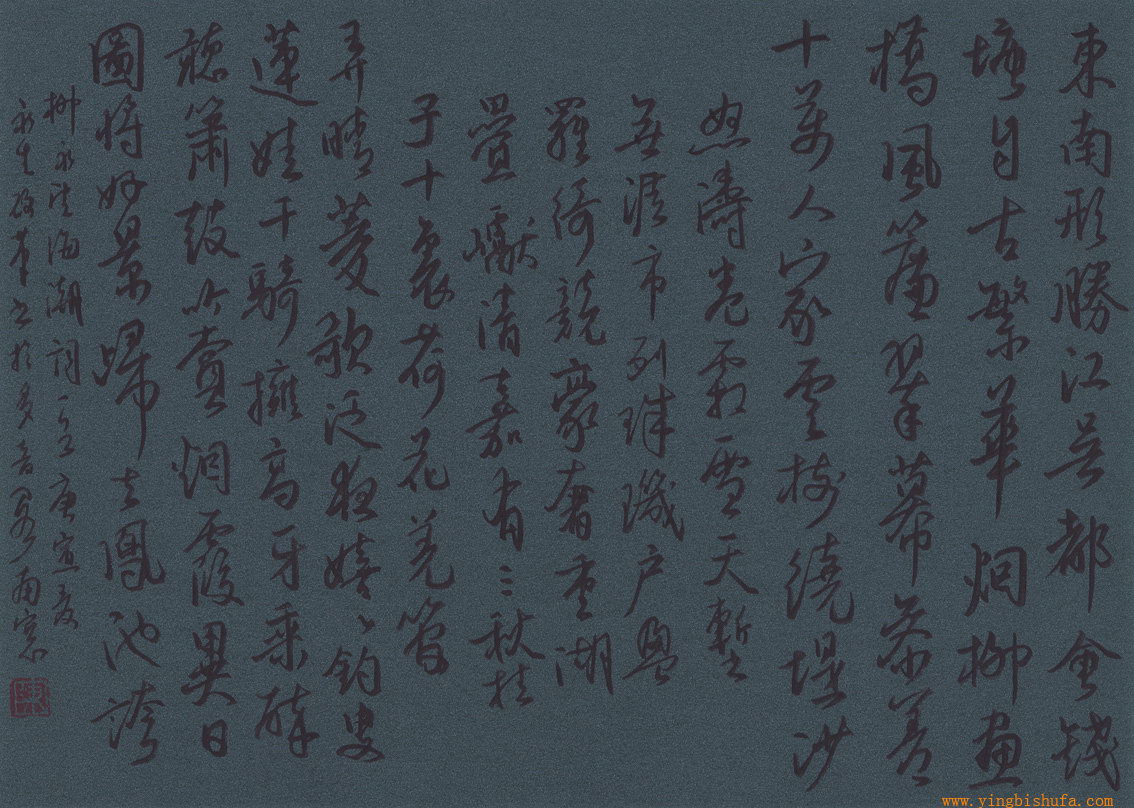 東南形勝江吳都會錢
塘自古繁華烟柳畫
橋風簾翠幕參差
十萬人家雲樹繞堤沙
怒濤卷霜雪天塹
無涯市列珠璣户盈
羅綺競豪奢重湖
疊巘清嘉有三秋桂
子十裏荷花羌管
弄晴菱歌泛夜嬉〻釣叟
蓮娃千騎擁高牙乘醉
聽簫鼓吟賞烟霞異日
圖將好景歸去鳳池誇
柳永望海潮詞一首庚寅夏
永生 書於多音閣南窗
www.yingbishufa.com